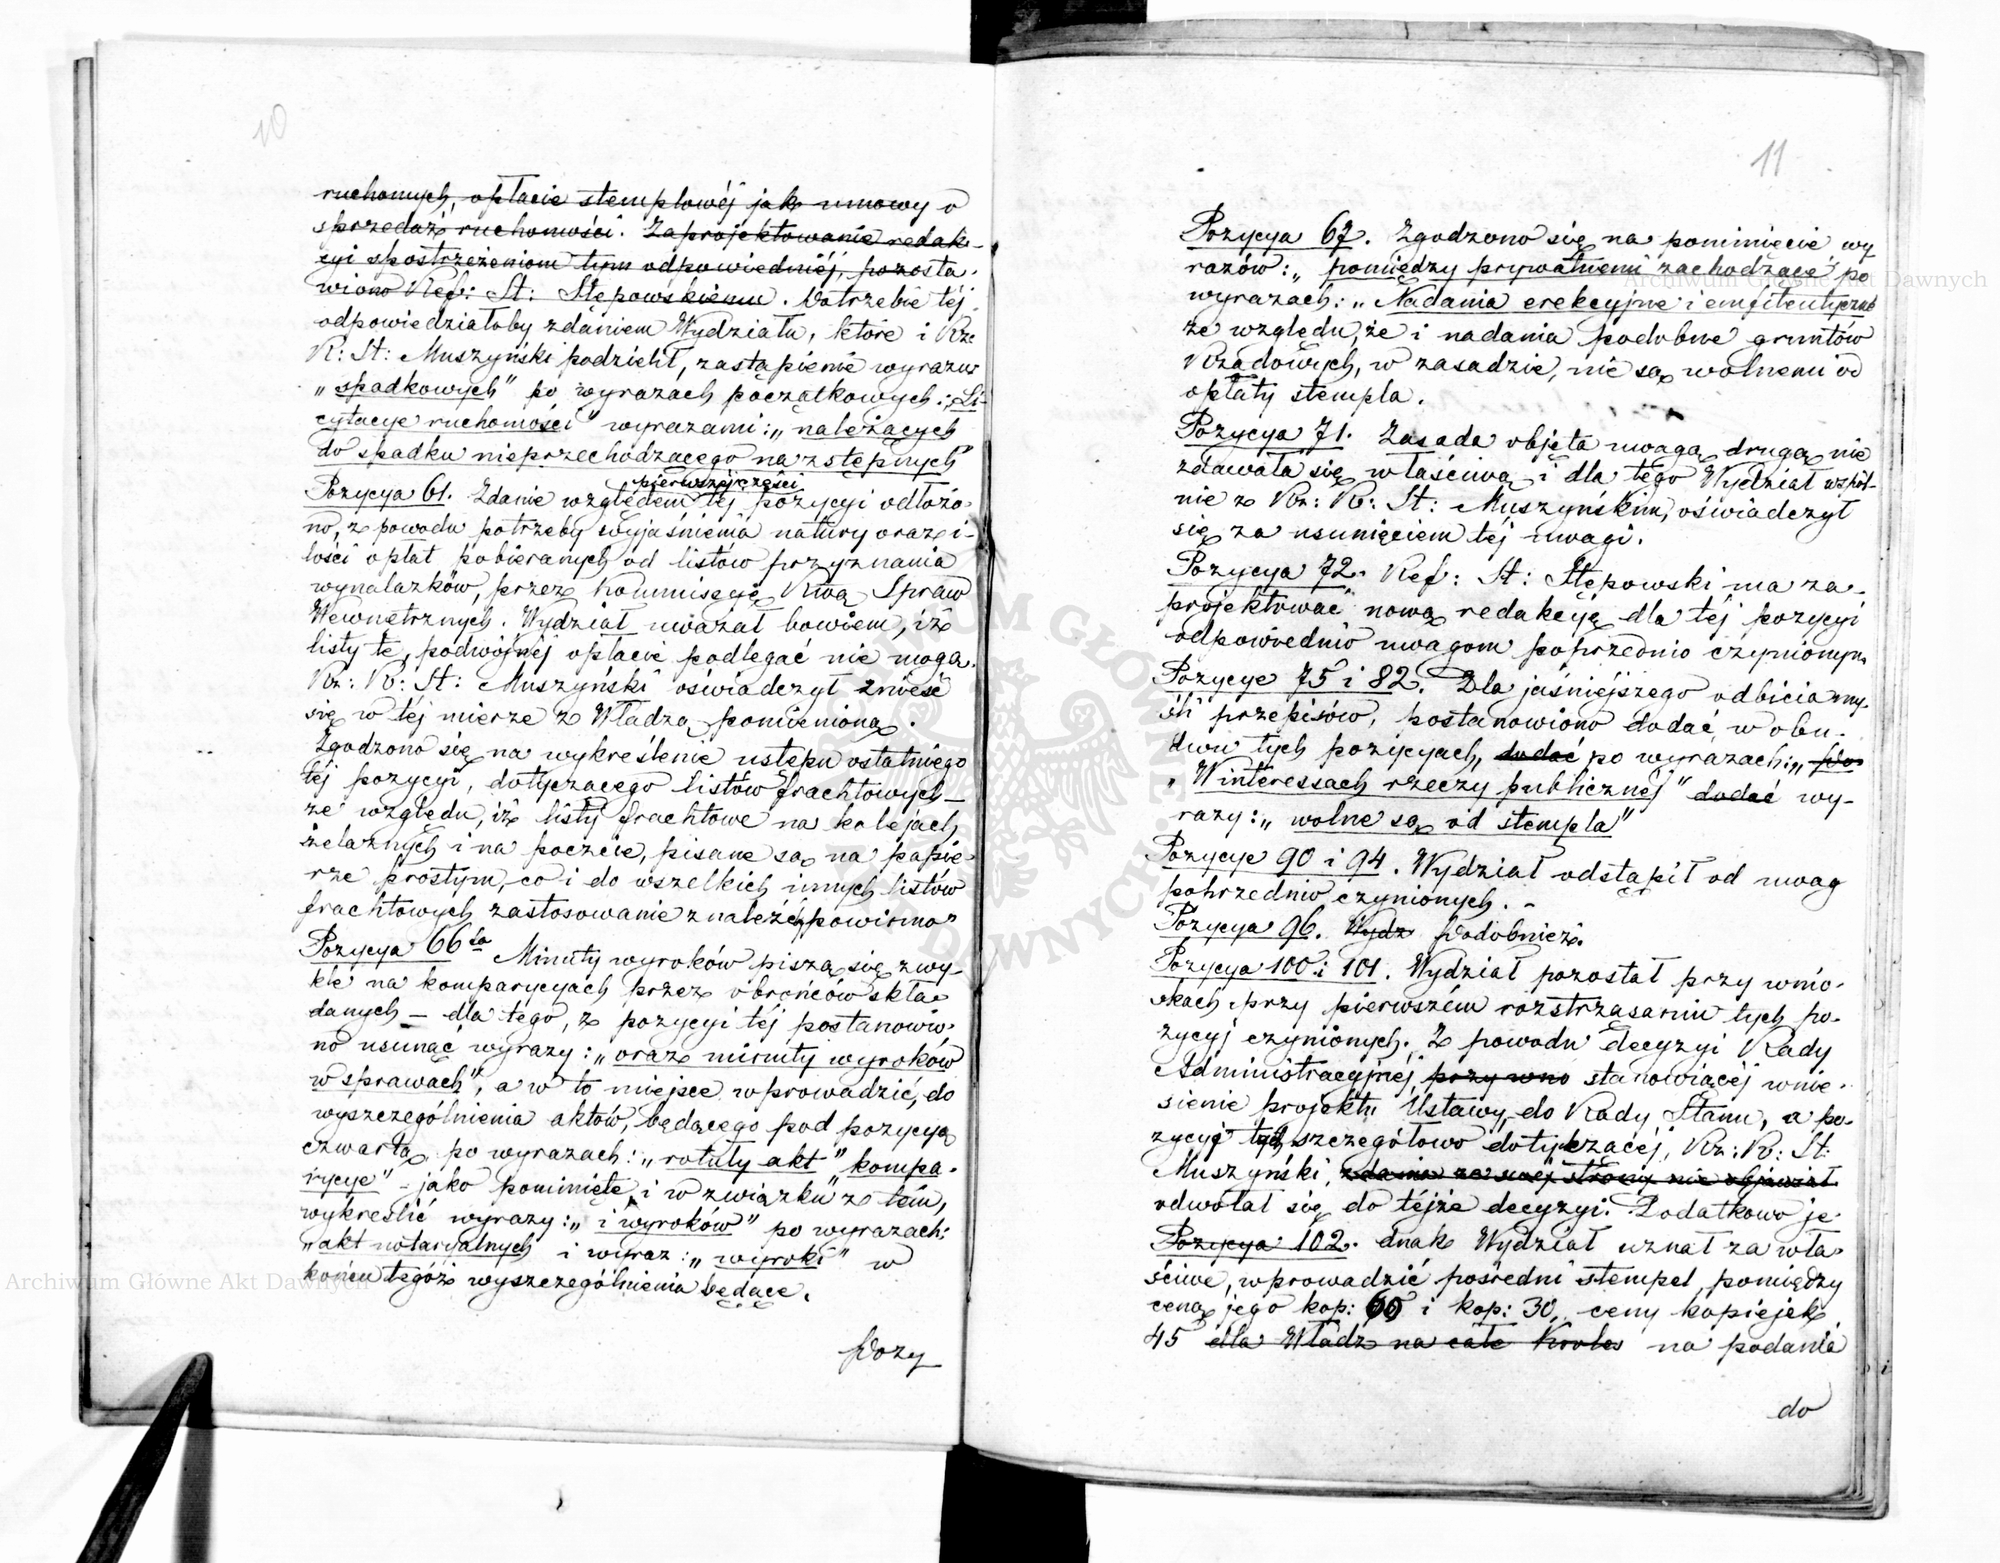 10
ruchomych, opłacie stemplowéj jak umowy o
sprzedaż ruchomości. Zaprojektowanie redak-
cyi spostrzeżeniom tym odpowiedniéj, pozosta-
wiono Ref: St: Stępowskiemu. Potrzebie téj
odpowiedziałoby zdaniem Wydziału, które i Rz:
R: St: Muszyński podzielił, zastąpienie wyrazu
„spadkowych" po wyrazach początkowych: „Li-
cytacye ruchomości" wyrazami: „należących
do spadku nieprzechodzącego na zstępnych"
pierwszéj części
Pozycya 61. Zdanie względem téj pozycyi odłożo-
no, z powodu potrzeby wyjaśnienia natury oraz i-
lości opłat pobieranych od listów przyznania
wynalazków, przez Kommissyę Rwą Spraw
Wewnętrznych. Wydział uważał bowiem, iż
listy te, podwójnéj opłacie podlegać nie mogą.
Rz: R: St: Muszyński oświadczył znieść
się w téj mierze z Władzą pomienioną.
Zgodzono się na wykreślenie ustępu ostatniego
téj pozycyi, dotyczącego listów frachtowych—
ze względu, iż listy frachtowe na kolejach
żelaznych i na poczcie, pisane są na papie-
rze prostym, co i do wszelkich innych listów
frachtowych zastosowanie znaleźć powinno
Pozycya 66ta Minuty wyroków piszą się zwy-
kle na komparycyach przez obrońców skła-
danych — dla tego, z pozycyi téj postanowio-
no usunąć wyrazy: „oraz minuty wyroków
w sprawach", a w to miejsce wprowadzić, do
wyszczególnienia aktów, będącego pod pozycyą
czwartą po wyrazach: „rotuły akt" „kompa-
rycye" – jako pominięte, i w związku z tém,
wykreślić wyrazy: „i wyroków" po wyrazach:
„akt notaryalnych i wyraz: „wyroki" w
końcu tegóż wyszczególnienia będące.
Pozy
11
Pozycya 67. Zgodzono się na pominięcie wy
razów: „pomiędzy prywatnemi zachodzące" po
wyrazach: „Nadania erekcyjne i emfiteutyczne
ze względu, że i nadania podobne gruntów
Rządowych, w zasadzie, nie są wolnemi od
opłaty stempla.
Pozycya 71. Zasada objęta uwagą drugą nie
zdawała się właściwą i dla tego Wydział wspól-
nie z Rz: R: St: Muszyńskim, oświadczył
się za usunięciem téj uwagi.
Pozycya 72. Ref: St: Stępowski ma za-
projektować nową redakcyę dla téj pozycyi
odpowiednio uwagom poprzednio czynionym
Pozycye 75 i 82. Dla jaśniejszego odbicia my-
śli przepisów, postanowiono dodać, w obu-
dwu tych pozycyach, dodać po wyrazach: „po
„W interessach rzeczy publicznéj" dodać wy-
razy: „wolne są od stempla"
Pozycye 90 i 94. Wydział odstąpił od uwag
poprzednio czynionych. -
Pozycya 96. Wydz Podobnież.
Pozycya 100 i 101. Wydział pozostał przy wnio-
skach przy pierwszém roztrząsaniu tych po-
zycyj czynionych. Z powodu decyzyi Rady
Administracyjnéj przy wno stanowiącéj wnie-
sienie projektu Ustawy, do Rady Stanu, a po-
zycyi tych szczegółowo dotyczącéj, Rz: R: St:
Muszyński, zdania ze swéj strony nie objawiał
odwołał się do téjże decyzyi. Dodatkowo je-
Pozycya 102. dnak Wydział uznał za wła-
ściwe, wprowadzić pośredni stempel, pomiędzy
ceną jego kop: 60 i kop: 30, ceny kopiejek
45 dla Władz na całe Króles na podania
do
Archiwum Główne Akt Dawnych
Archiwum Główne Akt Dawnych
ARCHIWUM GŁÓWNE AKT DAWNYCH